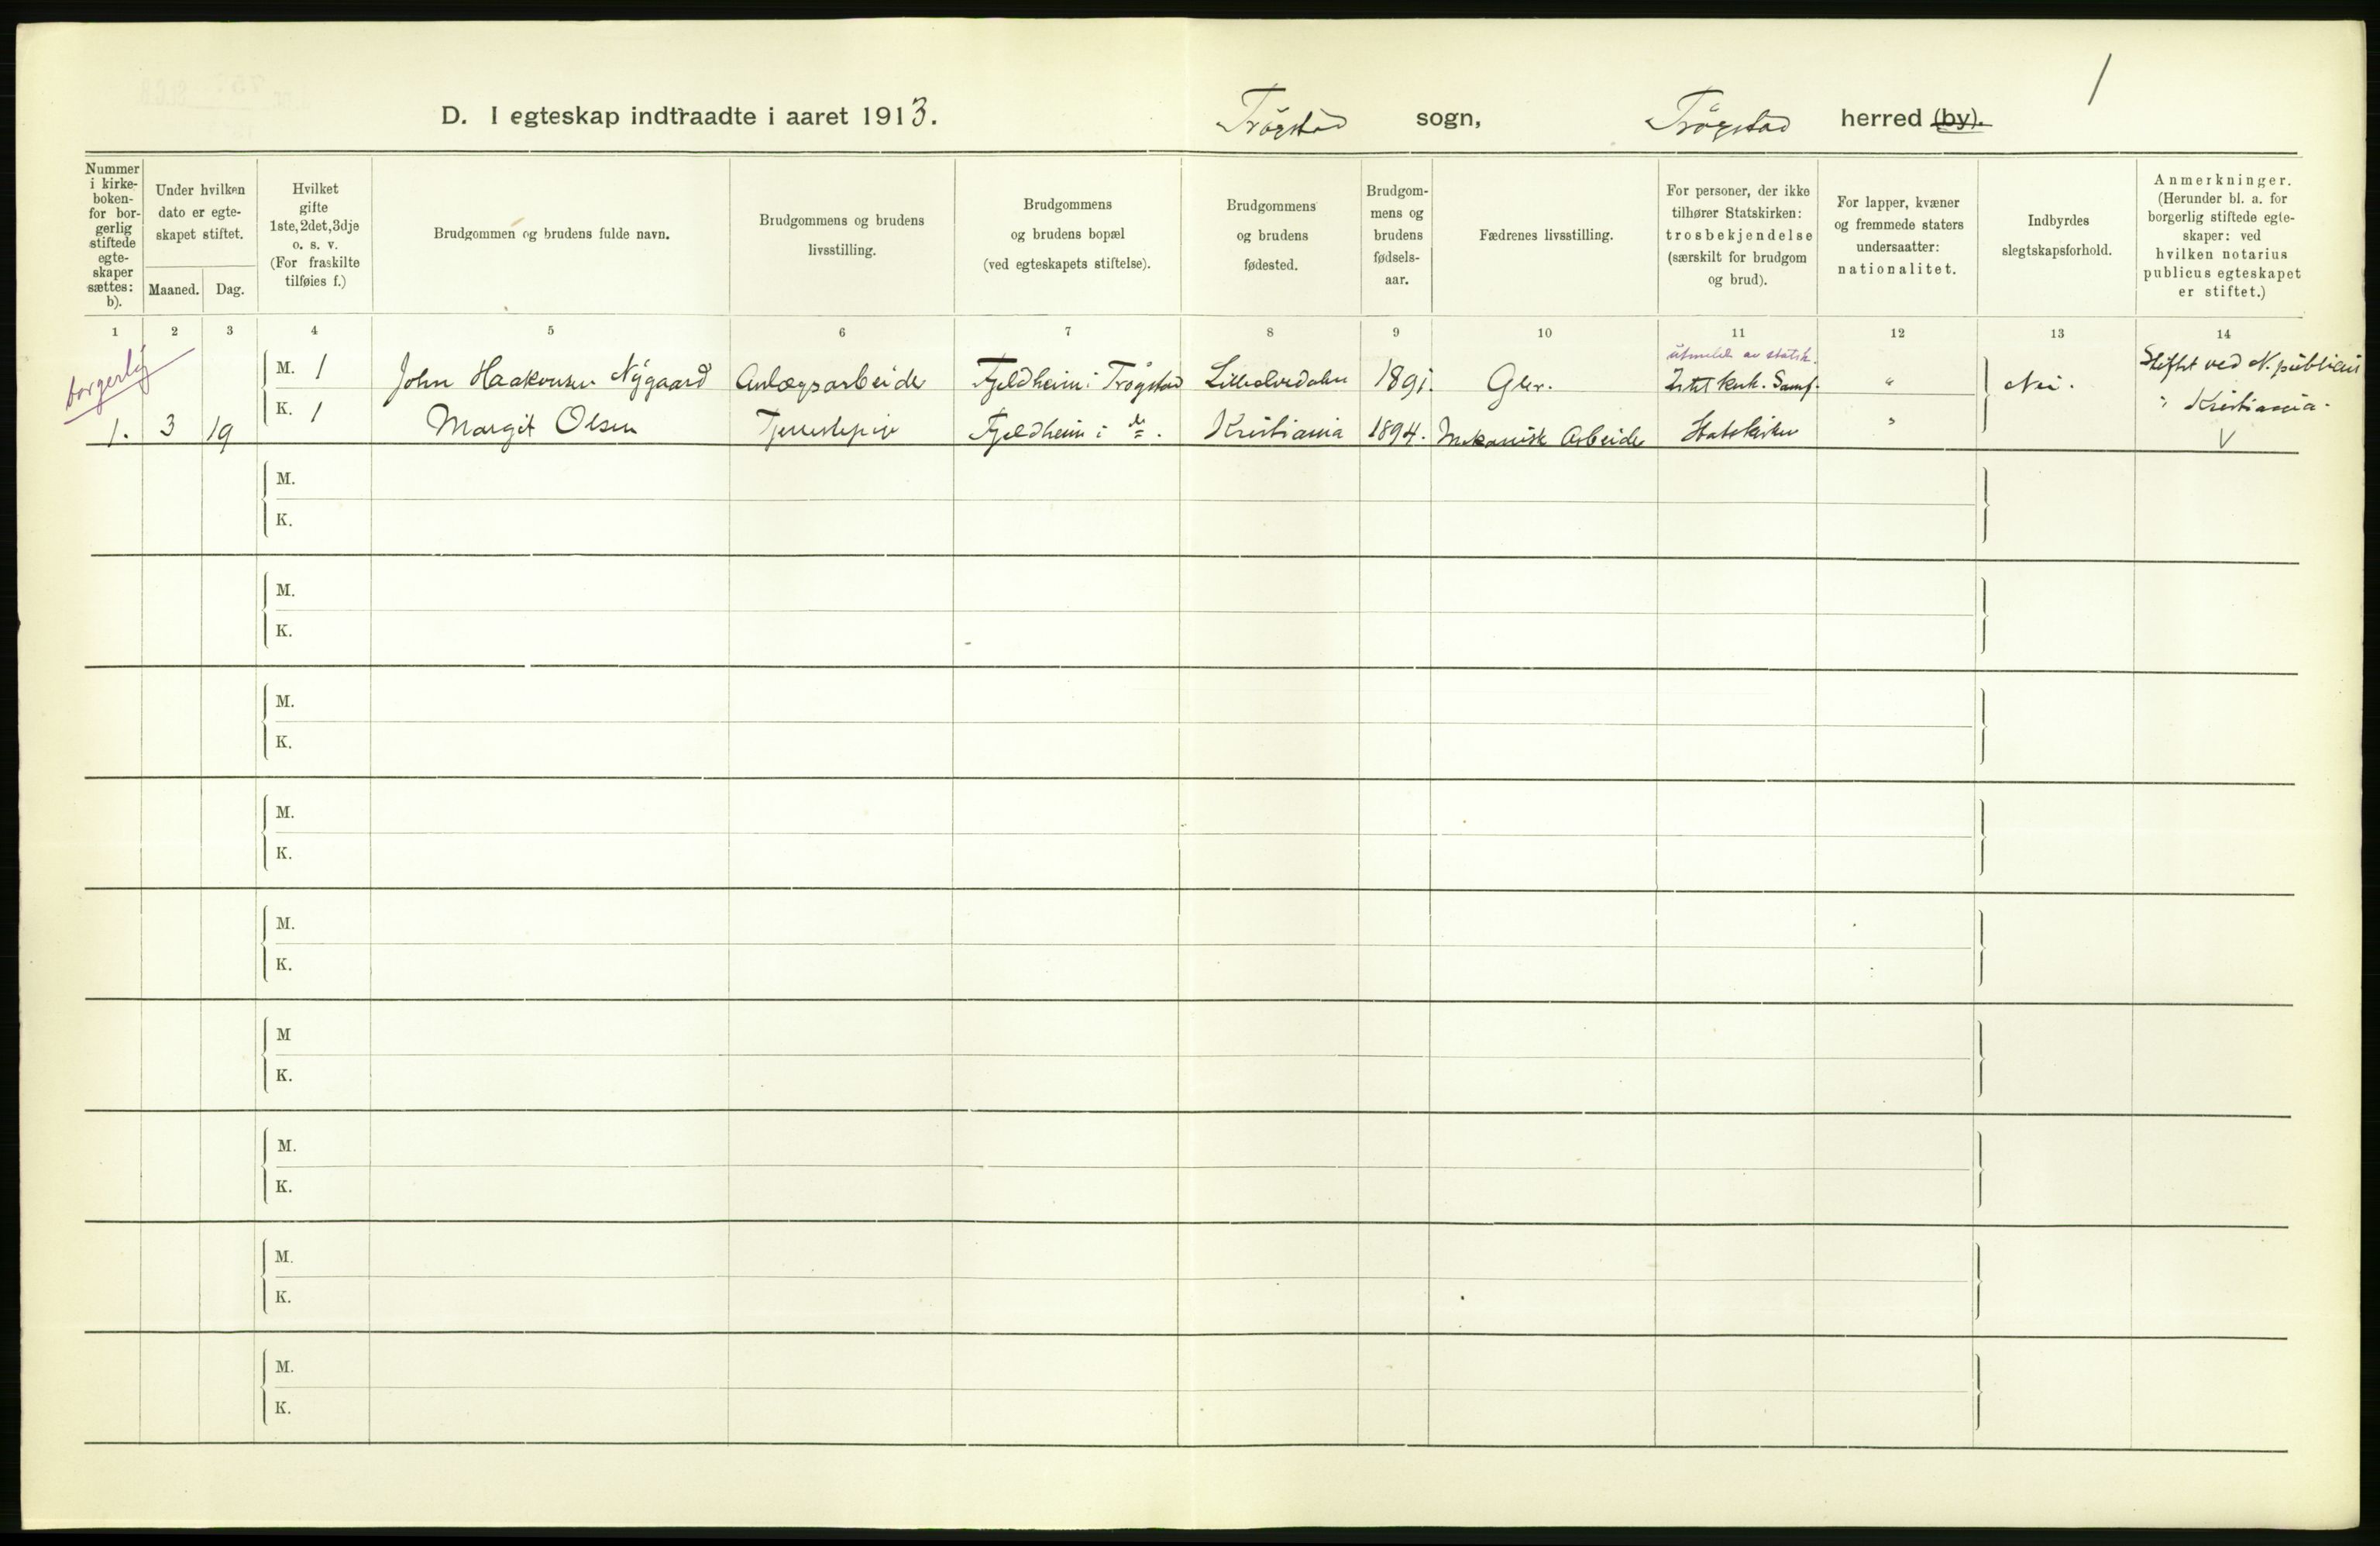 1
D. I egteskap indtraadte i aaret 1913. Trøgstad sogn, Trøgstad herred (by).
Nummer i kirke- boken- for bor- gerlig stiftede egte- skaper sættes: b).
Under hvilken dato er egte- skapet stiftet.
Maaned. Dag.
Hvilket gifte 1ste, 2det, 3dje o. s. v. (For fraskilte tilføies f.)
Brudgommen og brudens fulde navn.
Brudgommens og brudens livsstilling.
Brudgommens og brudens bopæl (ved egteskapets stiftelse).
Brudgommens og brudens fødested.
Brudgom- mens og brudens fødsels- aar.
Fædrenes livsstilling.
For personer, der ikke tilhører Statskirken: trosbekjendelse (særskilt for brudgom og brud).
For lapper, kvæner og fremmede staters undersaatter: nationalitet.
Indbyrdes slegtskapsforhold.
Anmerkninger. (Herunder bl. a. for borgerlig stiftede egte- skaper: ved hvilken notarius publicus egteskapet er stiftet.)
1 2 3 4 5 6 7 8 9 10 11 12 13 14
borgerlig
utmeldt av statsk.
M. 1 John Haakonsen Nygaard Anlægsarbeider Fjeldheim i Trøgstad Lilleelvedalen 1891. Gbr. " Nei. Stiftet ved N. publicus
" Kristiania.
1. 3 19 K. 1 Margit Olsen Tjenestepige Fjeldheim i do. Kristiania 1894. Mekanisk Arbeider Statskirken " V
M.
K.
M.
K.
M.
K.
M.
K.
M.
K.
M
K.
M.
K.
M.
K.
M.
K.